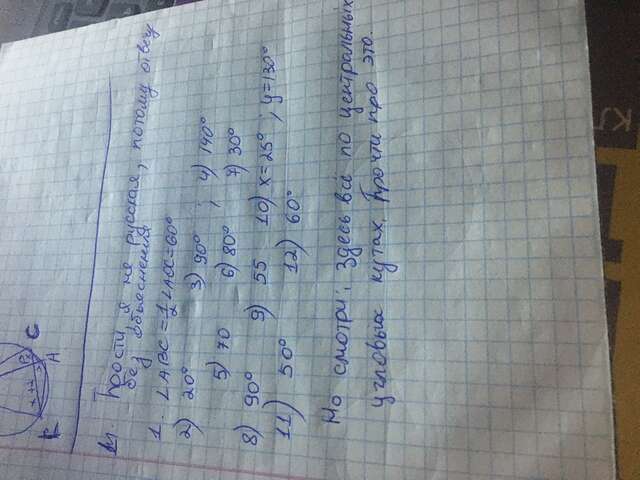 C
A
M. Прости я не Русская, потому отвечу
без объяснения
1. ∠ABC = 1/2 ∠AOC = 60°
2) 20° 3) 90° ; 4) 140°
5) 70 6) 80° 7) 30°
8) 90° 9) 55 10) x = 25° ; y = 130°
11) 50° 12) 60°
Но смотри, здесь всё по центральных
угловых кутах. Прочти про это.